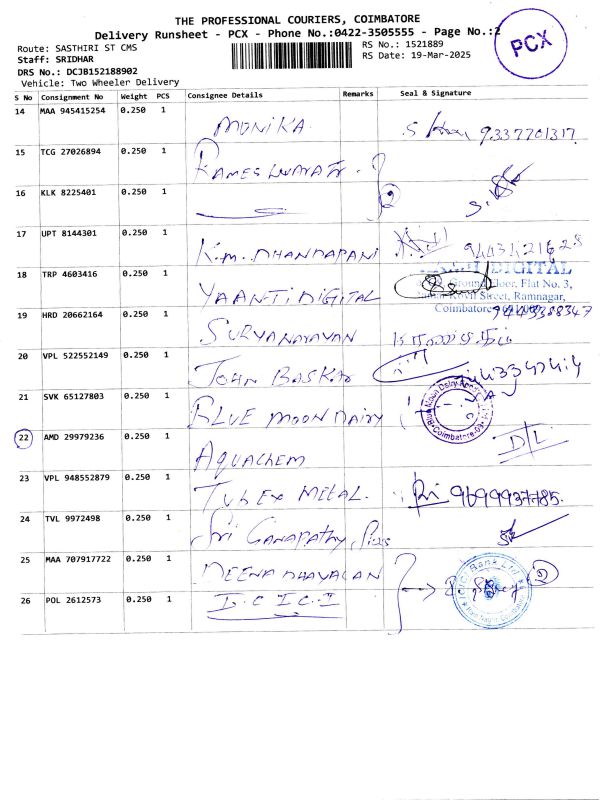 THE PROFESSIONAL COURIERS, COIMBATORE
Delivery Runsheet - PCX - Phone No.:0422-3505555 - Page No.:2
PCX
Route: SASTHIRI ST CMS
RS No.: 1521889
Staff: SRIDHAR
RS Date: 19-Mar-2025
DRS No.: DCJB152188902
Vehicle: Two Wheeler Delivery
S No Consignment No Weight PCS Consignee Details Remarks Seal & Signature
14 MAA 945415254 0.250 1 MONIKA 9337701317
15 TCG 27026894 0.250 1
16 KLK 8225401 0.250 1 2
17 UPT 8144301 0.250 1 K.M. DHANDAPANI
DIGITAL
Ground Floor, Flat No. 3,
18 TRP 4603416 0.250 1 YAANTI DIGITAL
Street, Ramnagar,
Coimbatore
19 HRD 20662164 0.250 1 SURYANARAYAN
20 VPL 522552149 0.250 1 JOHN BASKAR
21 SVK 65127803 0.250 1 BLUE MOON DAIRY
Coimbatore
22 AMD 29979236 0.250 1 AQUACHEM D/L
23 VPL 948552879 0.250 1 TUBEX METAL. 9699937785.
24 TVL 9972498 0.250 1 Sri GANAPATHY
25 MAA 707917722 0.250 1 DEENADHAYALAN
ICICI Bank Ltd
26 POL 2612573 0.250 1 I.C IC.I